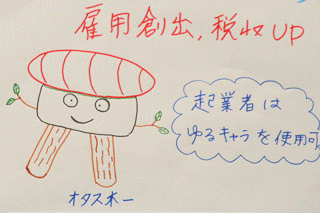 雇用創出,税収UP
起業者は
ゆるキャラを使用可
オタスホー